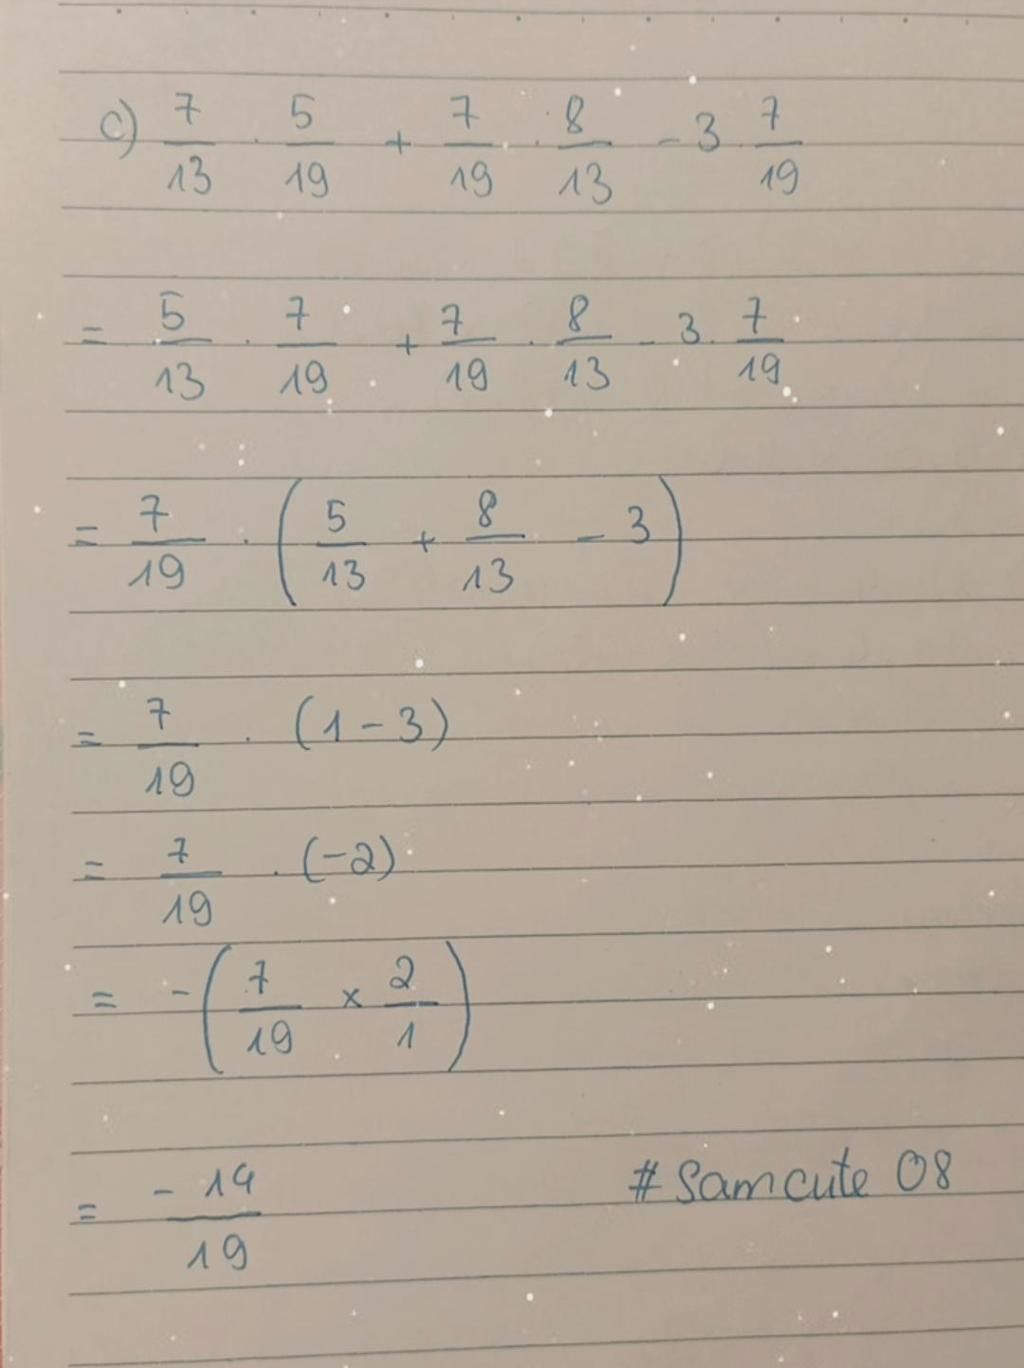 c) 7/13 . 5/19 + 7/19 . 8/13 - 3 . 7/19
= 5/13 . 7/19 + 7/19 . 8/13 - 3 . 7/19
= 7/19 . (5/13 + 8/13 - 3)
= 7/19 . (1 - 3)
= 7/19 . (-2)
= - (7/19 x 2/1)
= -14/19
# Samcute 08